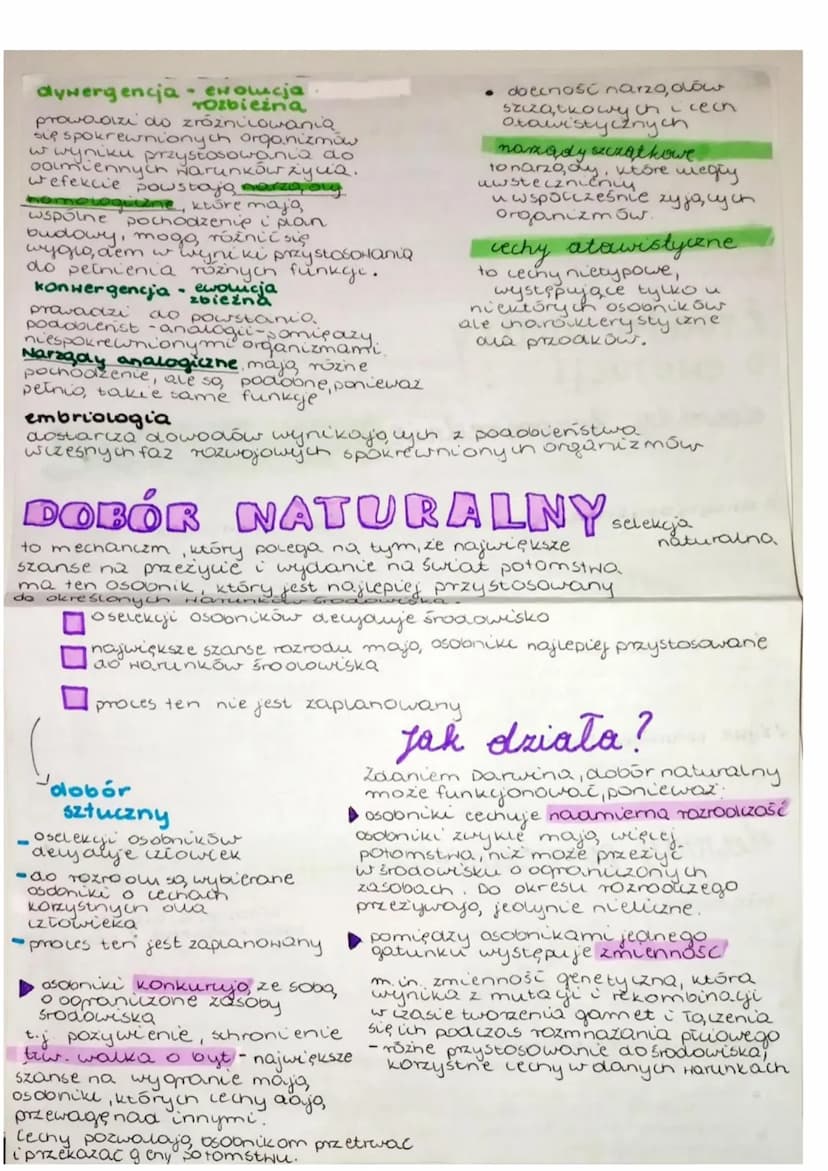 dywergencja - ewolucja
rozbieżna
prowadzi do zróżnicowania
się spokrewnionych organizmów
w wyniku przystosowania do
odmiennych warunków życia.
w efekcie powstają narządy
homologiczne, które mają
wspólne pochodzenie i plan
budowy, mogą różnić się
wyglądem w wyniki przystosowania
do pełnienia różnych funkcji.
konwergencja - ewolucja
zbieżna
prowadzi do powstania
podobieńst - analogii - pomiędzy
niespokrewnionymi organizmami.
Narządy analogiczne mają różne
pochodzenie, ale są podobne, ponieważ
pełnią takie same funkcje
embriologia
dostarcza dowodów wynikających z podobieństwa
wczesnych faz rozwojowych spokrewnionych organizmów
• obecność narządów
szczątkowych i cech
atawistycznych
narządy szczątkowe
to narządy, które uległy
uwstecznieniu
u współcześnie żyjących
organizmów.
cechy atawistyczne
to cechy nietypowe,
występujące tylko u
niektórych osobników
ale charakterystyczne
dla przodków.
DOBÓR NATURALNY selekcja
naturalna
to mechanizm, który polega na tym, że największe
szanse na przeżycie i wydanie na świat potomstwa
ma ten osobnik, który jest najlepiej przystosowany
do określonych warunków środowiska.
o selekcji osobników decyduje środowisko
największe szanse rozrodu mają osobniki najlepiej przystosowane
do warunków środowiska
proces ten nie jest zaplanowany
dobór
sztuczny
- o selekcji osobników
decyduje człowiek
- do rozrodu są wybierane
osobniki o cechach
korzystnych dla
człowieka
- proces ten jest zaplanowany
Jak działa?
Zdaniem Darwina, dobór naturalny
może funkcjonować, ponieważ:
osobniki cechuje nadmierna rozrodczość
osobniki zwykle mają więcej
potomstwa, niż może przeżyć
w środowisku o ograniczonych
zasobach. Do okresu rozrodczego
przeżywają jedynie nieliczne.
pomiędzy osobnikami jednego
gatunku występuje zmienność
m.in. zmienność genetyczna, która
wynika z mutacji i rekombinacji
w czasie tworzenia gamet i łączenia
się ich podczas rozmnażania płciowego
- różne przystosowanie do środowiska,
korzystne cechy w danych warunkach
osobniki konkurują ze sobą
o ograniczone zasoby
środowiska
t.j pożywienie, schronienie
tzw. walka o byt - największe
szanse na wygranie mają
osobniki, których cechy dają
przewagę nad innymi.
Cechy pozwalają osobnikom przetrwać
i przekazać geny potomstwu.